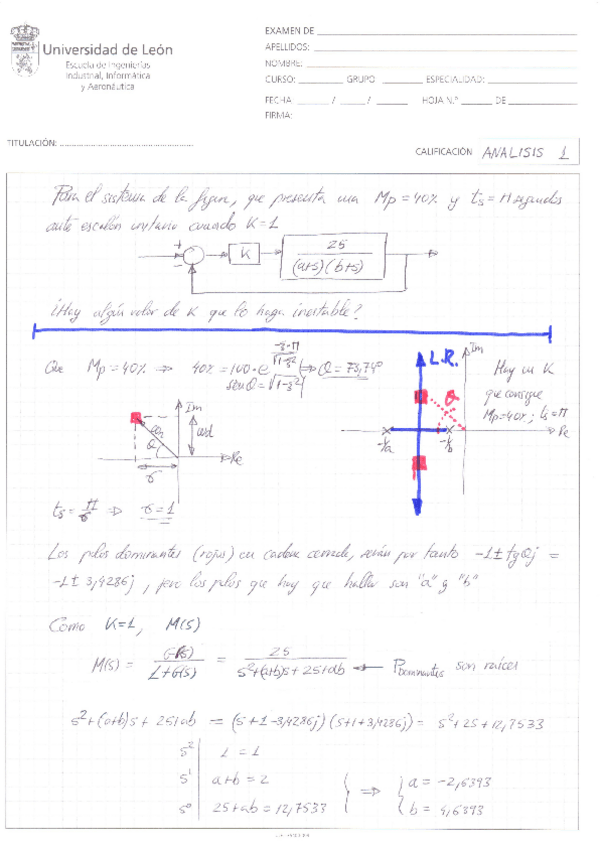 Universidad de León
Escuela de Ingenierías
Industrial, Informática
y Aeronáutica
EXAMEN DE
APELLIDOS:
NOMBRE:
CURSO: GRUPO ESPECIALIDAD:
FECHA / / HOJA N.º DE
FIRMA:
TITULACIÓN:
CALIFICACIÓN ANALISIS 1
Para el sistema de la figura, que presenta una Mp=40% y ts=π segundos
ante escalón unitario cuando K=1
+
-
K
25
(a+s)(b+s)
¿Hay algún valor de K que lo haga inestable?
Que Mp=40% => 40%=100·e^(-ξ·π/√(1-ξ²)) => θ=73,74°
senθ=√(1-ξ²)
L.R.
Im
θ
Hay un K
que consigue
Mp=40%; ts=π
-a
-b
Re
Im
ωn
ωd
θ
Re
σ
ts=π/σ => σ=1
Los polos dominantes (rojos) en cadena cerrada, serán por tanto -1±tgθj =
-1±3,4286j, pero los polos que hay que hallar son "a" y "b"
Como K=1, M(s)
M(s) = G(s)/(1+G(s)) = 25/(s²+(a+b)s+25+ab) ← Pdominantes son raíces
s²+(a+b)s+25+ab = (s+1-3,4286j)(s+1+3,4286j) = s²+2s+12,7533
s² | 1 = 1
s¹ | a+b = 2
s⁰ | 25+ab = 12,7533
=> { a = -2,6393
b = 4,6393